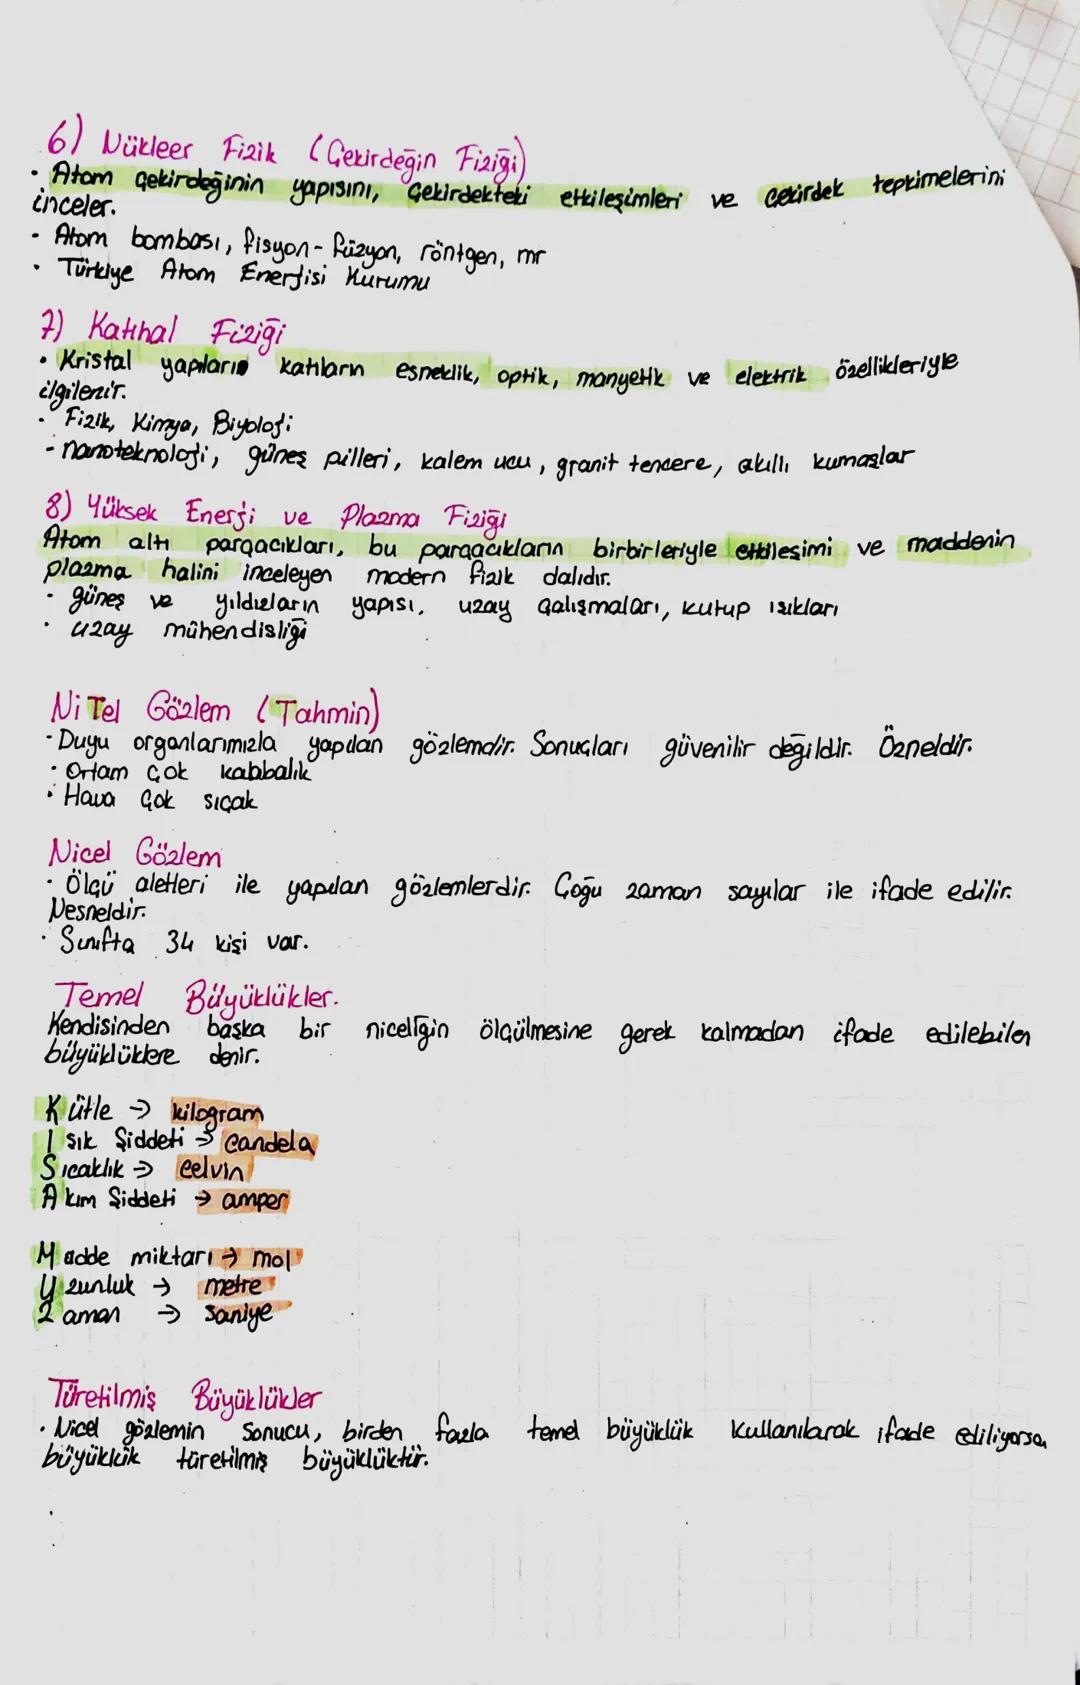 6) Nükleer Fizik (Çekirdeğin Fiziği)
· Atom çekirdeğinin yapısını, çekirdekteki etkileşimleri ve çekirdek tepkimelerini
inceler.
· Atom bombası, fisyon-füzyon, röntgen, mr
· Türkiye Atom Enerjisi Kurumu
7) Katıhal Fiziği
· Kristal yapıların katıların esneklik, optik, manyetik ve elektrik özellikleriyle
ilgilenir.
· Fizik, Kimya, Biyoloji
- nanoteknoloji, güneş pilleri, kalem ucu, granit tencere, akıllı kumaşlar
8) Yüksek Enerji ve Plazma Fiziği
Atom altı parçacıkları, bu parçacıkların birbirleriyle etkileşimi ve maddenin
plazma halini inceleyen modern fizik dalıdır.
· güneş ve yıldızların yapısı, uzay çalışmaları, kutup ışıkları
· uzay mühendisliği
NiTel Gözlem (Tahmin)
· Duyu organlarımızla yapılan gözlemdir. Sonuçları güvenilir değildir. Özneldir.
· Ortam çok kalabalık
· Hava çok sıcak
Nicel Gözlem
· Ölçü aletleri ile yapılan gözlemlerdir. Çoğu zaman sayılar ile ifade edilir.
Nesneldir.
· Sınıfta 34 kişi var.
Temel Büyüklükler.
Kendisinden başka bir niceliğin ölçülmesine gerek kalmadan ifade edilebilen
büyüklüklere denir.
Kütle → kilogram
Işık Şiddeti → candela
Sıcaklık → celvin
Akım Şiddeti → amper
Madde miktarı → mol
Uzunluk → metre
Zaman → saniye
Türetilmiş Büyüklükler
· Nicel gözlemin sonucu, birden fazla temel büyüklük kullanılarak ifade ediliyorsa
büyüklük türetilmiş büyüklüktür.